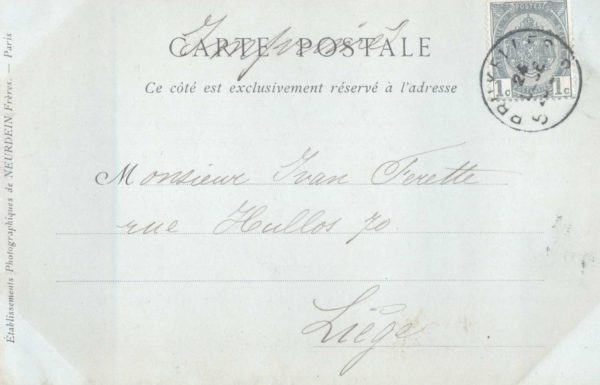 Imprimés
CARTE POSTALE
Ce côté est exclusivement réservé à l'adresse
Monsieur Ivan Ferette
rue Hullos 70
Liége
Établissements Photographiques de NEURDEIN Frères. — Paris
POSTES
1c 1c
BRUXELLES